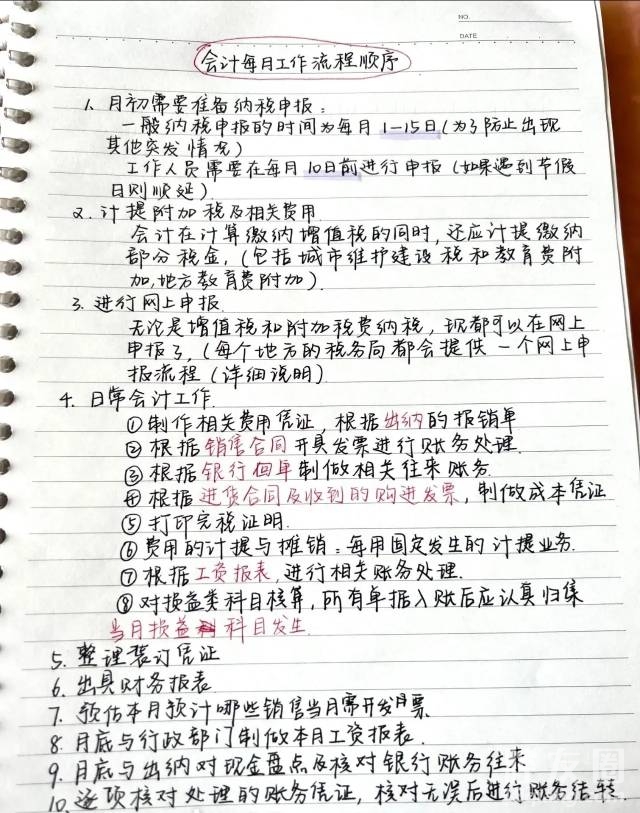 NO.
DATE
会计每月工作流程顺序
1. 月初需要准备纳税申报：
一般纳税申报的时间为每月1-15日(为了防止出现
其他突发情况)
工作人员需要在每月10日前进行申报(如果遇到节假
日则顺延)
2. 计提附加税及相关费用
会计在计算缴纳增值税的同时，还应计提缴纳
部分税金，(包括城市维护建设税和教育费附
加,地方教育费附加)
3. 进行网上申报
无论是增值税和附加税费纳税，现都可以在网上
申报了，(每个地方的税务局都会提供一个网上申
报流程(详细说明)
4. 日常会计工作
①制作相关费用凭证，根据出纳的报销单
②根据销售合同开具发票进行账务处理.
③根据银行回单制做相关往来账务
④根据进货合同及收到的购进发票，制做成本凭证
⑤打印完税证明.
⑥费用的计提与摊销：每用固定发生的计提业务.
⑦根据工资报表,进行相关账务处理.
⑧对损益类科目核算，所有单据入账后应认真归集
当月损益科目发生.
5. 整理装订凭证
6. 出具财务报表
7. 预估本月预计哪些销售当月需开发票
8. 月底与行政部门制做本月工资报表.
9. 月底与出纳对现金盘点及核对银行账务往来
10. 逐项核对处理的账务凭证，核对无误后进行账务结转.